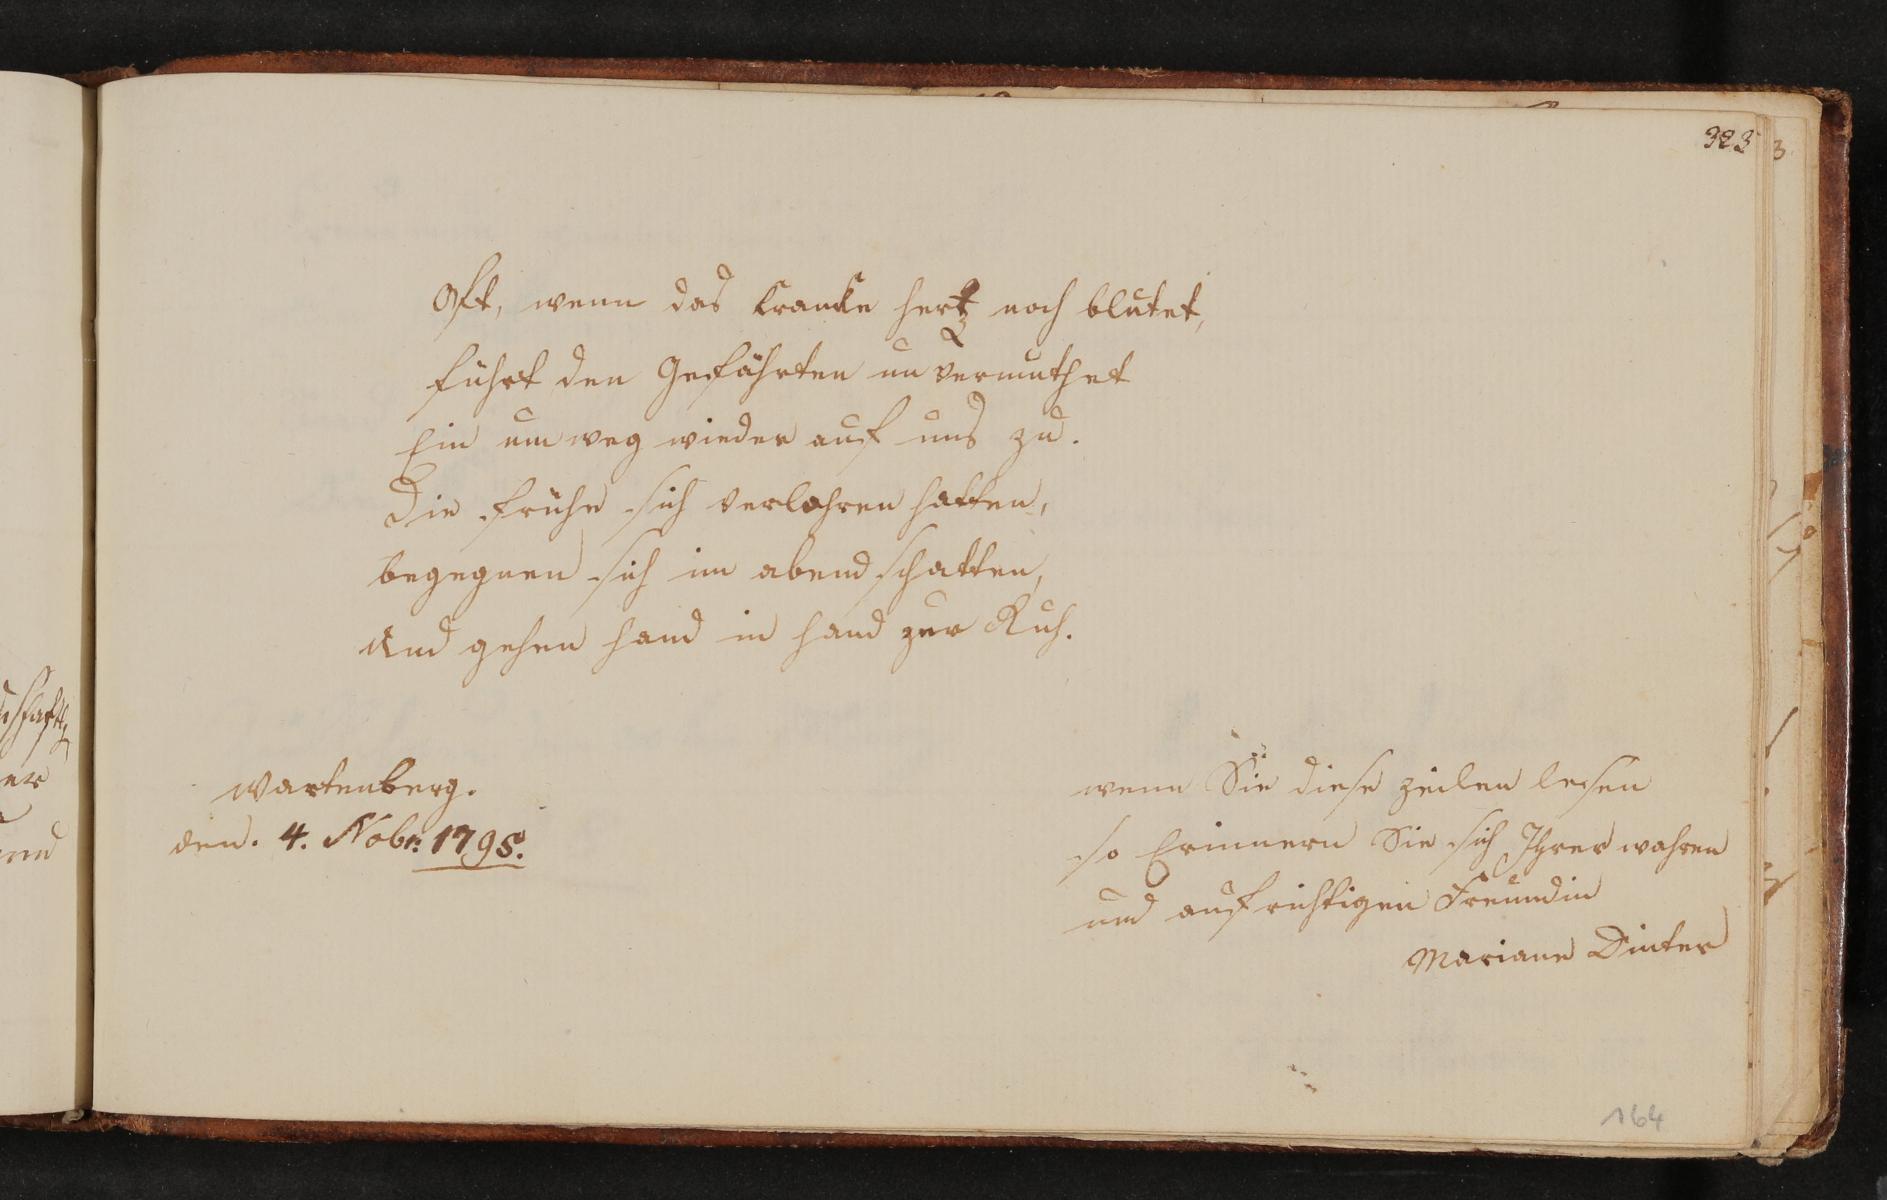 323
Oft, wenn das krancke hertz noch blutet,
führt den Gefährten un vermuthet
Ein um weg wieder auf uns zu.
Die frühe sich verlohren hatten,
begegnen sich im abend schatten,
Und gehen hand in hand zur Ruh.
Wartenberg.
den. 4. Nobr: 1795.
wenn Sie diese zeilen lesen
so Erinnern Sie sich Ihrer wahren
und aufrichtigen Freundin
Mariane Dinter
164